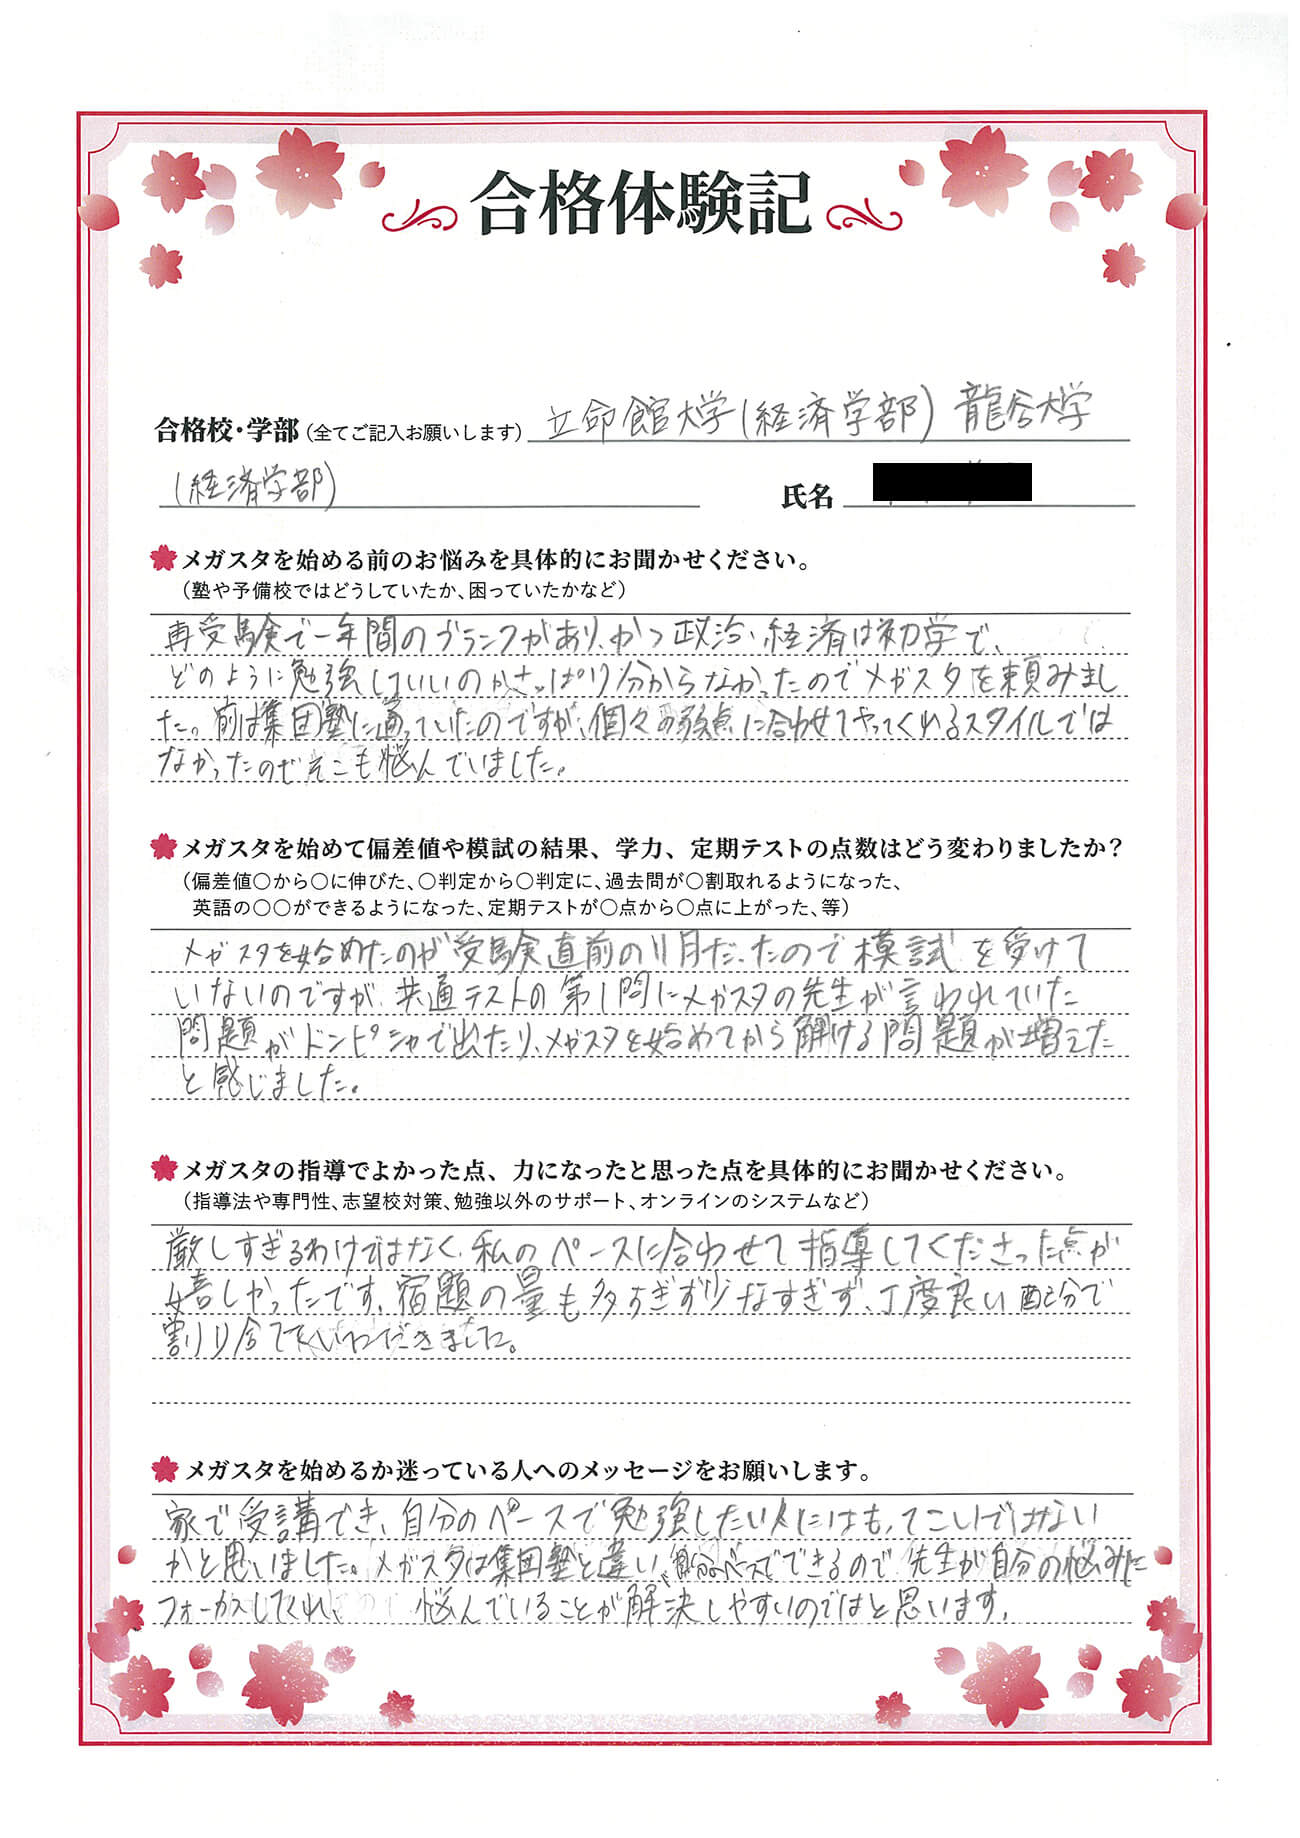 合格体験記
合格校・学部(全てご記入お願いします) 立命館大学(経済学部) 龍谷大学
(経済学部) 氏名
メガスタを始める前のお悩みを具体的にお聞かせください。
(塾や予備校ではどうしていたか、困っていたかなど)
再受験で一年間のブランクがあり、かつ政治・経済は初学で、
どのように勉強していいのかさっぱり分からなかったのでメガスタを頼みまし
た。前は集団塾に通っていたのですが、個々の弱点に合わせてやってくれるスタイルでは
なかったのでそこも悩んでいました。
メガスタを始めて偏差値や模試の結果、学力、定期テストの点数はどう変わりましたか?
(偏差値○から○に伸びた、○判定から○判定に、過去問が○割取れるようになった、
英語の○○ができるようになった、定期テストが○点から○点に上がった、等)
メガスタを始めたのが受験直前の11月だったので模試を受けて
いないのですが、共通テストの第1問にメガスタの先生が言われていた
問題がドンピシャで出たり、メガスタを始めてから解ける問題が増えた
と感じました。
メガスタの指導でよかった点、力になったと思った点を具体的にお聞かせください。
(指導法や専門性、志望校対策、勉強以外のサポート、オンラインのシステムなど)
厳しすぎるわけではなく、私のペースに合わせて指導してくださった点が
嬉しかったです。宿題の量も多すぎず少なすぎず、丁度良い配分で
割り当てていただきました。
メガスタを始めるか迷っている人へのメッセージをお願いします。
家で受講でき、自分のペースで勉強したい人にはもってこいではない
かと思いました。メガスタは集団塾と違い、自分のペースでできるので、先生が自分の悩みに
フォーカスしてくれ、悩んでいることが解決しやすいのではと思います。